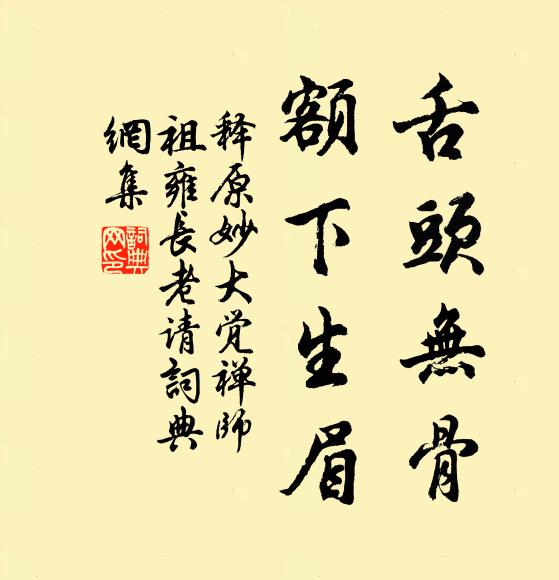 舌頭無骨
額下生眉
释原妙大觉禅師
祖雍長老请詞典
網集
詞典网印